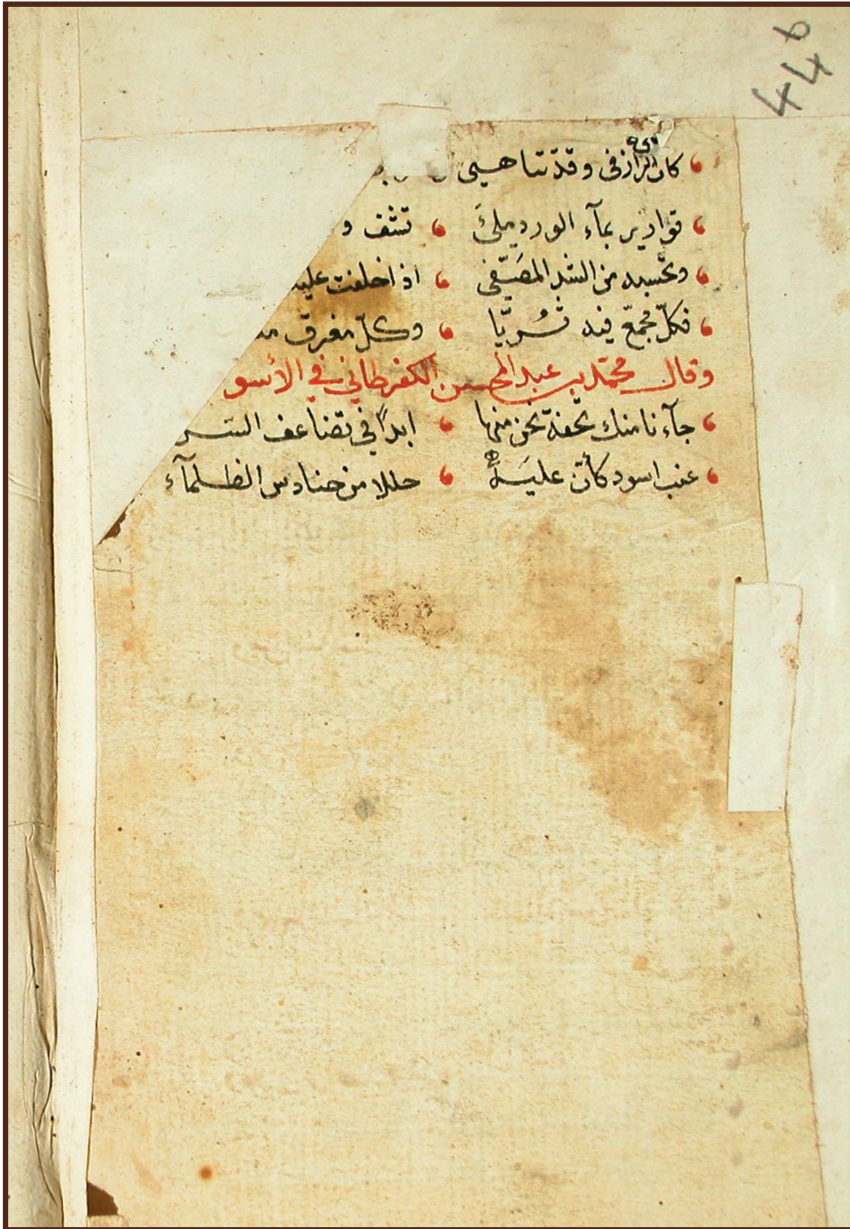 44b
كان الرازقي وقد تناهى
قوارير بماء الورد ملئ ، تشف و
وتحسبه من الشهد المصفى ، اذ اختلفت عليه
فكل مجمع فيه ثريا ، وكل مفرق
وقال محمد بن عبد المحسن الكفرطابي في الأسو
جآءنا منك تحفة نحن منها ، ابدًا في تضاعف الس
عنب اسود كأن عليه ، حللا من حنادس الظلمآء